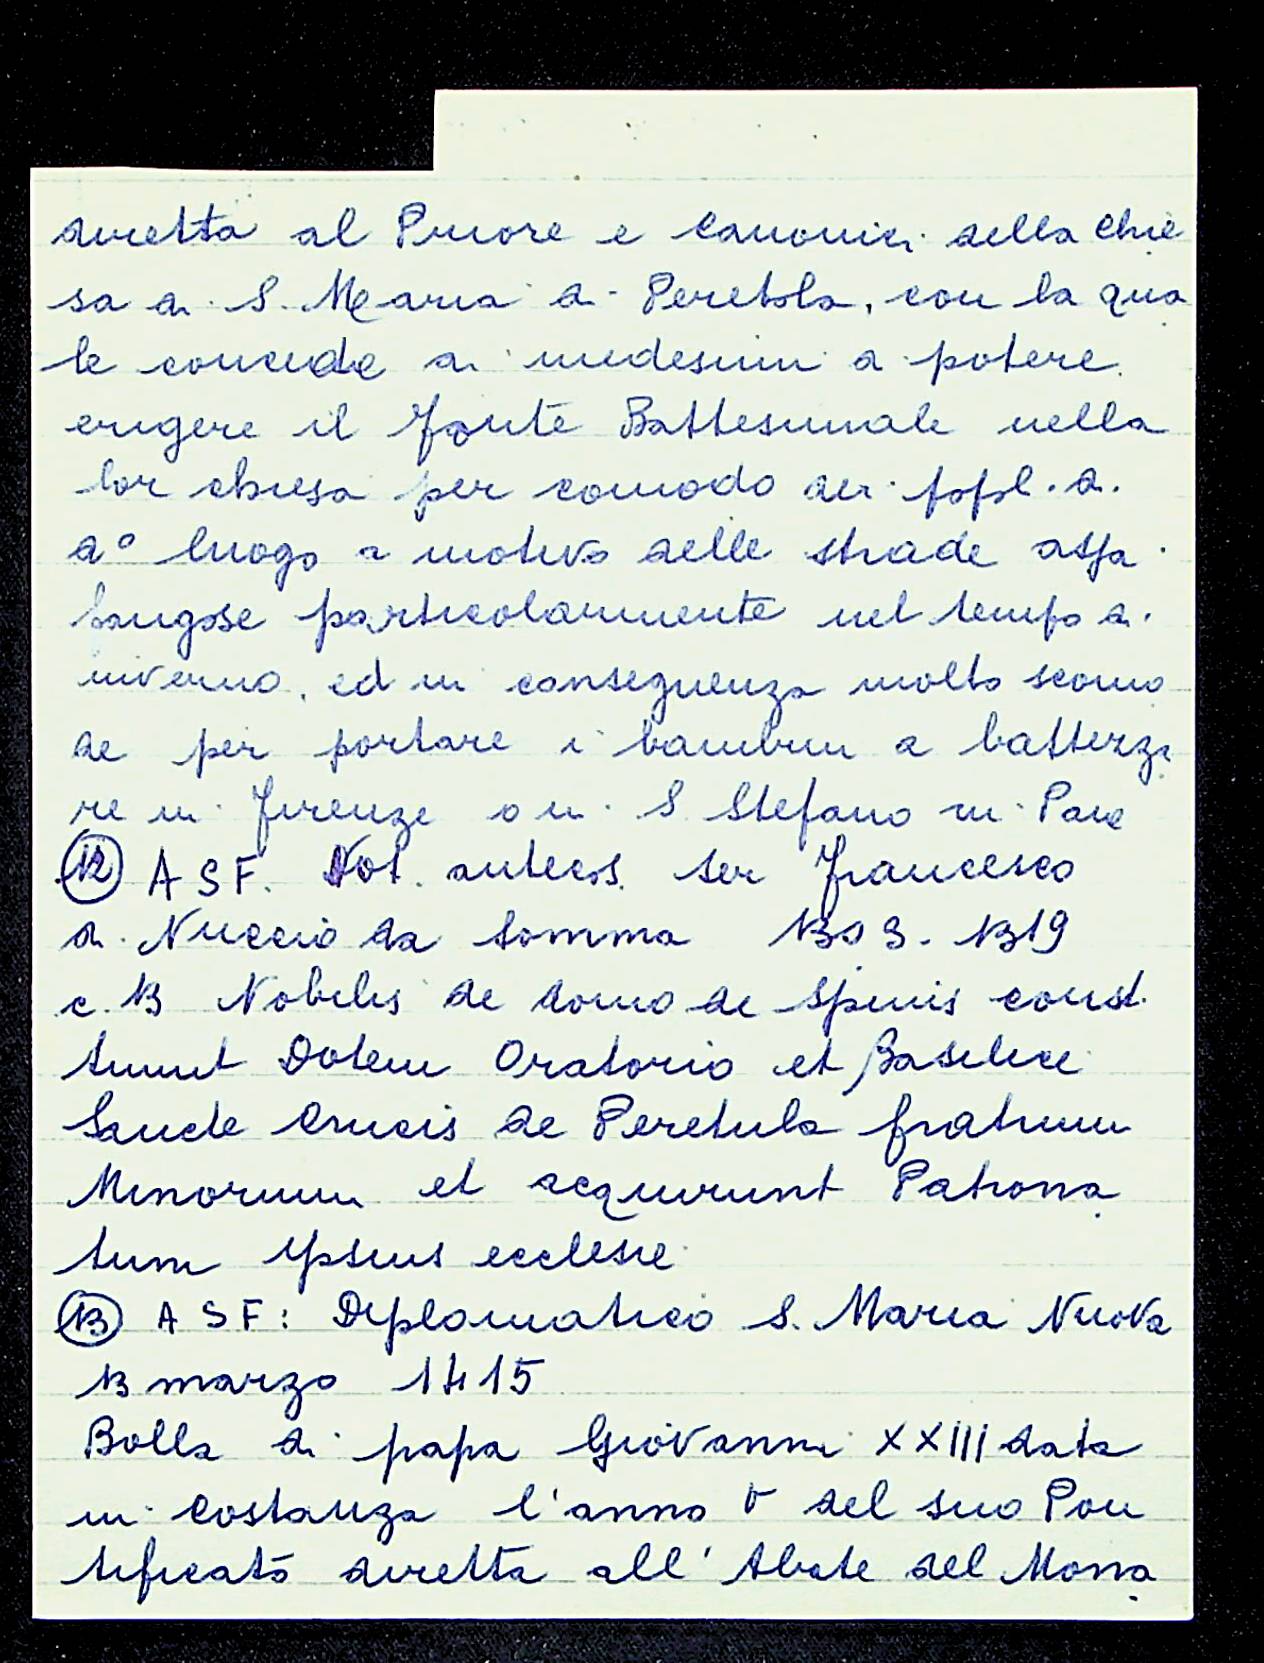 diretta al Priore e Canonici della Chie
sa di S. Maria a Peretola, con la qua
le concede ai medesimi a potere
erigere il fonte Battesimale nella
lor chiesa per comodo dei popol. di
do luogo a motivo delle strade assa
fangose particolarmente nel tempo di
inverno, ed in conseguenza molto scomo
de per portare i bambini a battezza
re in Firenze o in S Stefano in Pane
12 ASF. Not. antecos. ser Francesco
di Nuccio da Somma 1303-1319
c. 13 Nobiles de domo de Spinis const
tuunt Dotem Oratorio et Basilice
Sancte Crucis de Peretula fratrum
Minorum et acquirunt Patrona
tum ipsius ecclesie
13 ASF: Diplomatico S. Maria Nuova
13 marzo 1415
Bolla di papa Giovanni XXIII data
in Costanza l'anno V del suo Pon
tificato diretta all'Abate del Mona